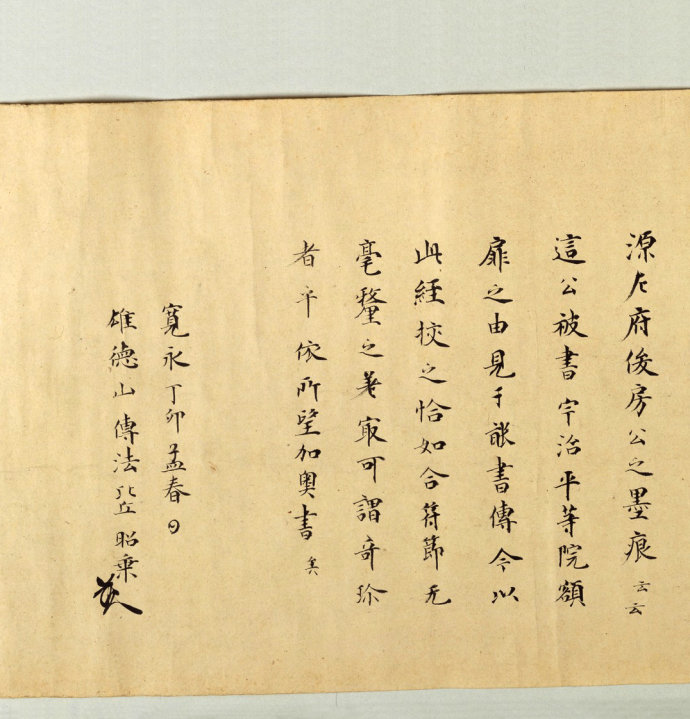 源左府俊房公之墨痕云云
這公被書宇治平等院額
扉之由見于諸書傳今以
此經挍之恰如合符節无
毫釐之差寂可謂奇珎
者乎依所望加奥書矣
寛永丁卯孟春日
雄徳山傳法比丘昭乗